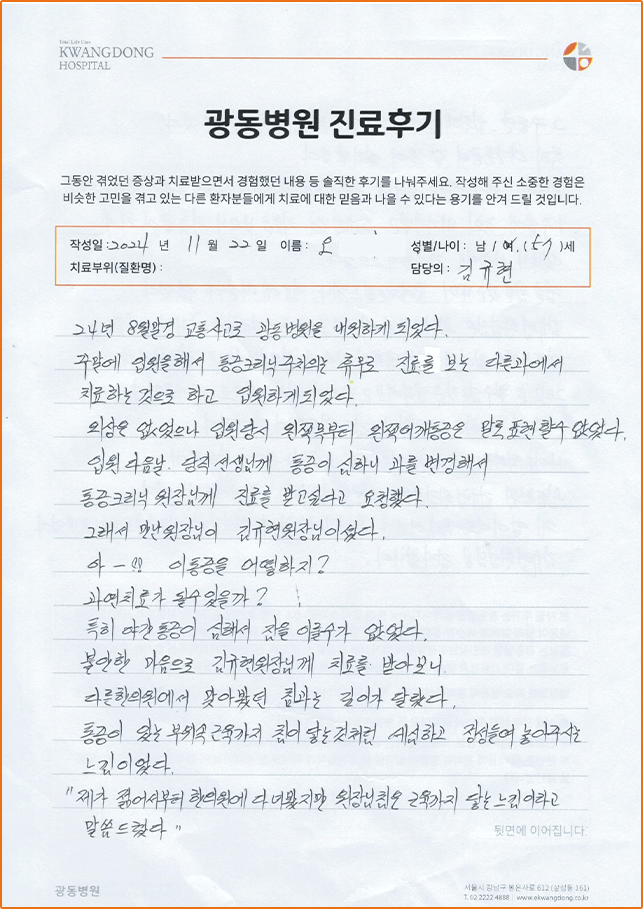 Total Life Care
KWANGDONG
HOSPITAL
광동병원 진료후기
그동안 겪었던 증상과 치료받으면서 경험했던 내용 등 솔직한 후기를 나눠주세요. 작성해 주신 소중한 경험은
비슷한 고민을 겪고 있는 다른 환자분들에게 치료에 대한 믿음과 나을 수 있다는 용기를 안겨 드릴 것입니다.
작성일 : 2024 년 11 월 22 일 이름 : 오 성별/나이 : 남 / 여, (57)세
치료부위(질환명) : 담당의 : 김규현
24년 8월말경 교통사고로 광동병원을 내원하게 되었다.
주말에 입원을해서 통증크리닉 주치의는 휴무로 진료를 보는 다른과에서
치료하는것으로 하고 입원하게되었다.
외상은 없었으나 입원당시 왼쪽목부터 왼쪽어깨통증은 말로 표현 할수 없었다.
입원 다음날. 당직 선생님께 통증이 심하니 과를 변경해서
통증크리닉 원장님께 진료를 받고싶다고 요청했다.
그래서 만난원장님이 김규현원장님이셨다.
아 - !! 이통증을 어떻하지?
과연치료가 될수있을까?
특히 야간통증이 심해서 잠을 이룰수가 없었다.
불안한 마음으로 김규현원장님께 치료를 받아보니
다른한의원에서 맞아봤던 침과는 깊이가 달랐다.
통증이 있는 부위속 근육까지 침이 닿는것처럼 세심하고 정성들여 놓아주시는
느낌이었다.
"제가 젊어서부터 한의원에 다녀봤지만 원장님침은 근육까지 닿는느낌이라고
말씀드렸다"
뒷면에 이어집니다.
광동병원
서울시 강남구 봉은사로 612 (삼성동 161)
T. 02 2222 4888 | www.ekwangdong.co.kr